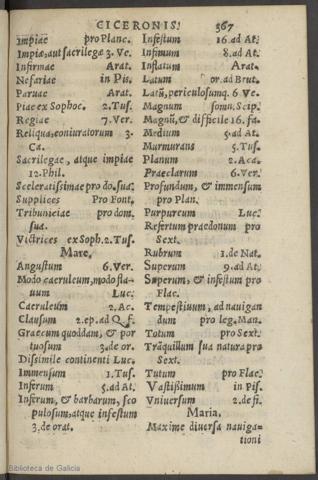 CICERONIS. 367
Impiae pro Planc.
Impiæ, aut sacrilegæ 3. Ve.
Infirmae Arat.
Nefariae in Pis.
Paruae Arat.
Piae ex Sophoc. 2. Tus.
Regiae 7. Ver.
Reliquæ coniuratorum 3.
Ca.
Sacrilegae, atque impiae
12. Phil.
Sceleratissimae pro do. sua.
Supplices Pro Font.
Tribuniciae pro dom.
sua.
Victrices ex Soph. 2. Tus.
Mare.
Angustum 6. Ver.
Modo caeruleum, modo fla-
uum Luc.
Caeruleum 2. Ac.
Clausum 2. ep. ad Q. f.
Graecum quoddam, & por
tuosum 3. de or.
Dissimile continenti Luc.
Immensum 1. Tus.
Inferum 5. ad At.
Inferum, & barbarum, sco
pulosum, atque infestum
3. de orat.
Infestum 16. ad At.
Infimum 8. ad At.
Inflatum Arat.
Latum or. ad Brut.
Latū, periculosumq. 6. Ve.
Magnum somn. Scip.
Magnū, & difficile 16. fa.
Medium 5. ad At.
Murmurans 5. Tus.
Planum 2. Aca.
Praeclarum 6. Ver.
Profundum, & immensum
pro Plan.
Purpureum Luc.
Refertum praedonum pro
Sext.
Rubrum 1. de Nat.
Superum 9. ad At.
Superum, & infestum pro
Flac.
Tempestiuum, ad nauigan
dum pro leg. Man.
Totum pro Sext.
Trāquillum sua natura pro
Sext.
Tutum pro Flac.
Vastißimum in Pis.
Vniuersum 2. de fi.
Maria.
Maxime diuersa nauiga-
tioni
Biblioteca de Galicia